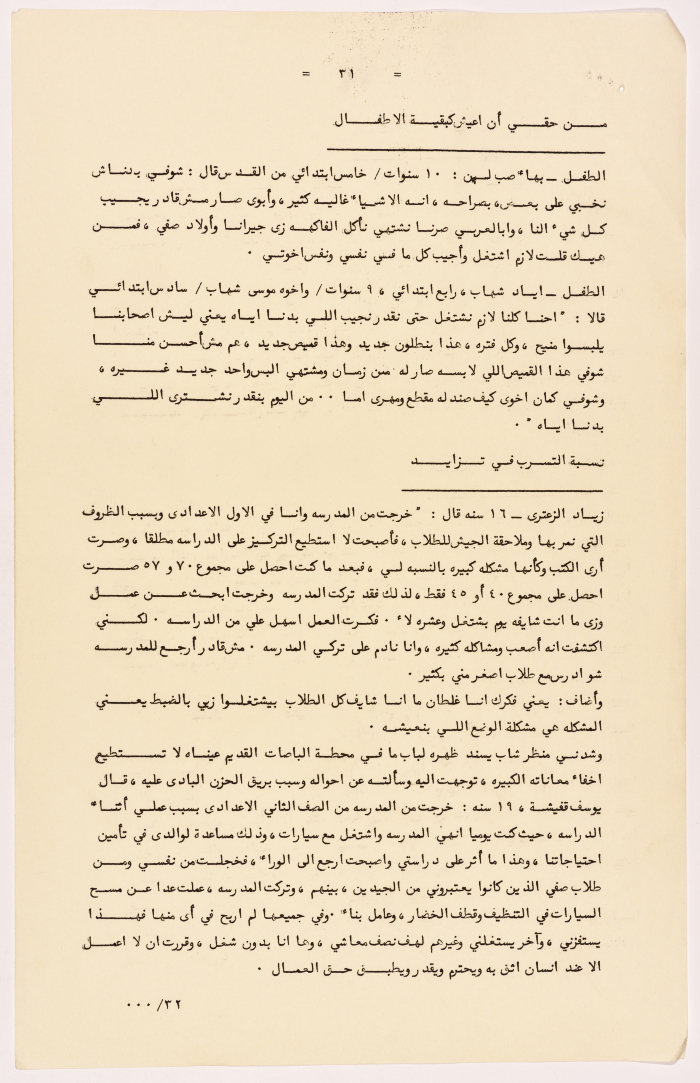 = ٣١ =
مـــن حقـــي أن اعيش كبقيـــة الاطفـــال
الطفــل ــ بهاء صب لبن : ١٠ سنوات / خامس ابتدائي من القدس قال : شوفي بدناش
نخبي على بعض، بصراحه ، انــه الاشياء غاليه كثير ، وأبوى صار مش قادر يجيــب
كــل شيء النا ، وابالعربي صرنا نشتهي نأكل الفاكهــه زى جيرانــا وأولاد صفي ، فمـــن
هيــك قلــت لازم اشتغل وأجيب كل ما فــي نفسي ونفس اخوتي .
الطفل ــ ايــاد شهاب ، رابع ابتدائي ، ٩ سنوات / واخوه موسى شهاب / سادس ابتدائـــي
قالا : " احنــا كلنا لازم نشتغل حتى نقدر نجيب اللي بدنا ايـاه يعني ليش اصحابنـــا
يلبسوا منيح ، وكل فتره ، هذا بنطلون جديد وهذا قميص جديد ، هم مش أحسن منـــا
شوفي هذا القميص اللي لابسه صار له مــن زمان ومشتهي البس واحد جديــد غـــيره ،
وشوفي كمان اخوى كيف صندله مقطع ومهرى امــا ٠٠ من اليوم بنقدر نشترى اللـــي
بدنــا ايــاه " .
نسبة التسرب فــي تــزايـــد
زيــاد الزعترى ــ ١٦ سنه قال : " خرجت من المدرسه وانــا في الاول الاعدادى وبسبب الظروف
التي نمر بهـا وملاحقة الجيش للطلاب ، فأصبحت لا استطيع التركيز على الدراسه مطلقا ، وصرت
أرى الكتب وكأنهـا مشكله كبيره بالنسبه لــي ، فبعد ما كنت احصل على مجموع ٧٠ و ٥٧ صـــرت
احصل على مجموع ٤٠ أو ٤٥ فقط ، لذلك فقد تركت المدرسه وخرجت ابحث عــن عمـــل
وزى ما انت شايفه يوم بشتغل وعشره لاء . فكرت العمل اسهل علي من الدراسـه . لكـــني
اكتشفت انه أصعب ومشاكله كثيره ، وانا نادم على تركـي المدرسه . مش قادر أرجع للمدرســـه
شو ادرس مع طلاب اصغر مني بكثير .
وأضاف : يعني فكرك انــا غلطان ما انــا شايف كل الطلاب بيشتغلــوا زيي بالضبط يعـــني
المشكله هي مشكلة الوضع اللــي بنعيشــه .
وشدنــي منظر شاب يسند ظهره لباب ما فــي محطــة الباصات القديم عينــاه لا تـــستطيع
اخفاء معاناته الكبيره ، توجهت اليه وسألتــه عن احواله وسبب بريق الحزن البادى عليه ، قــال
يوسف قفيشــة ، ١٩ سنه : خرجت من المدرسه من الصف الثاني الاعدادى بسبب عملــي أثنـــاء
الدراسه ، حيث كنت يوميا انهي المدرسه واشتغل مع سيارات ، وذلك مساعدة لوالدى في تأمين
احتياجاتنـا ، وهذا ما أثر على دراستي واصبحت ارجع الى الوراء ، فخجلــت من نفســي ومــن
طلاب صفي الذين كانوا يعتبروني من الجيدين ، بينهم ، وتركت المدرسه ، عملت عدا عــن مســح
السيارات في التنظيف وقطف الخضار ، وعامل بناء . وفي جميعها لم اربح في أى منهـا فهـــذا
يستفزني ، وآخر يستغلني وغيرهم لهــف نصف معاشي ، وها انـا بدون شغل ، وقررت ان لا اعمــل
الا عند انسان اثق به ويحترم ويقدر ويطبــق حــق العمــال .
٣٢/٠٠٠